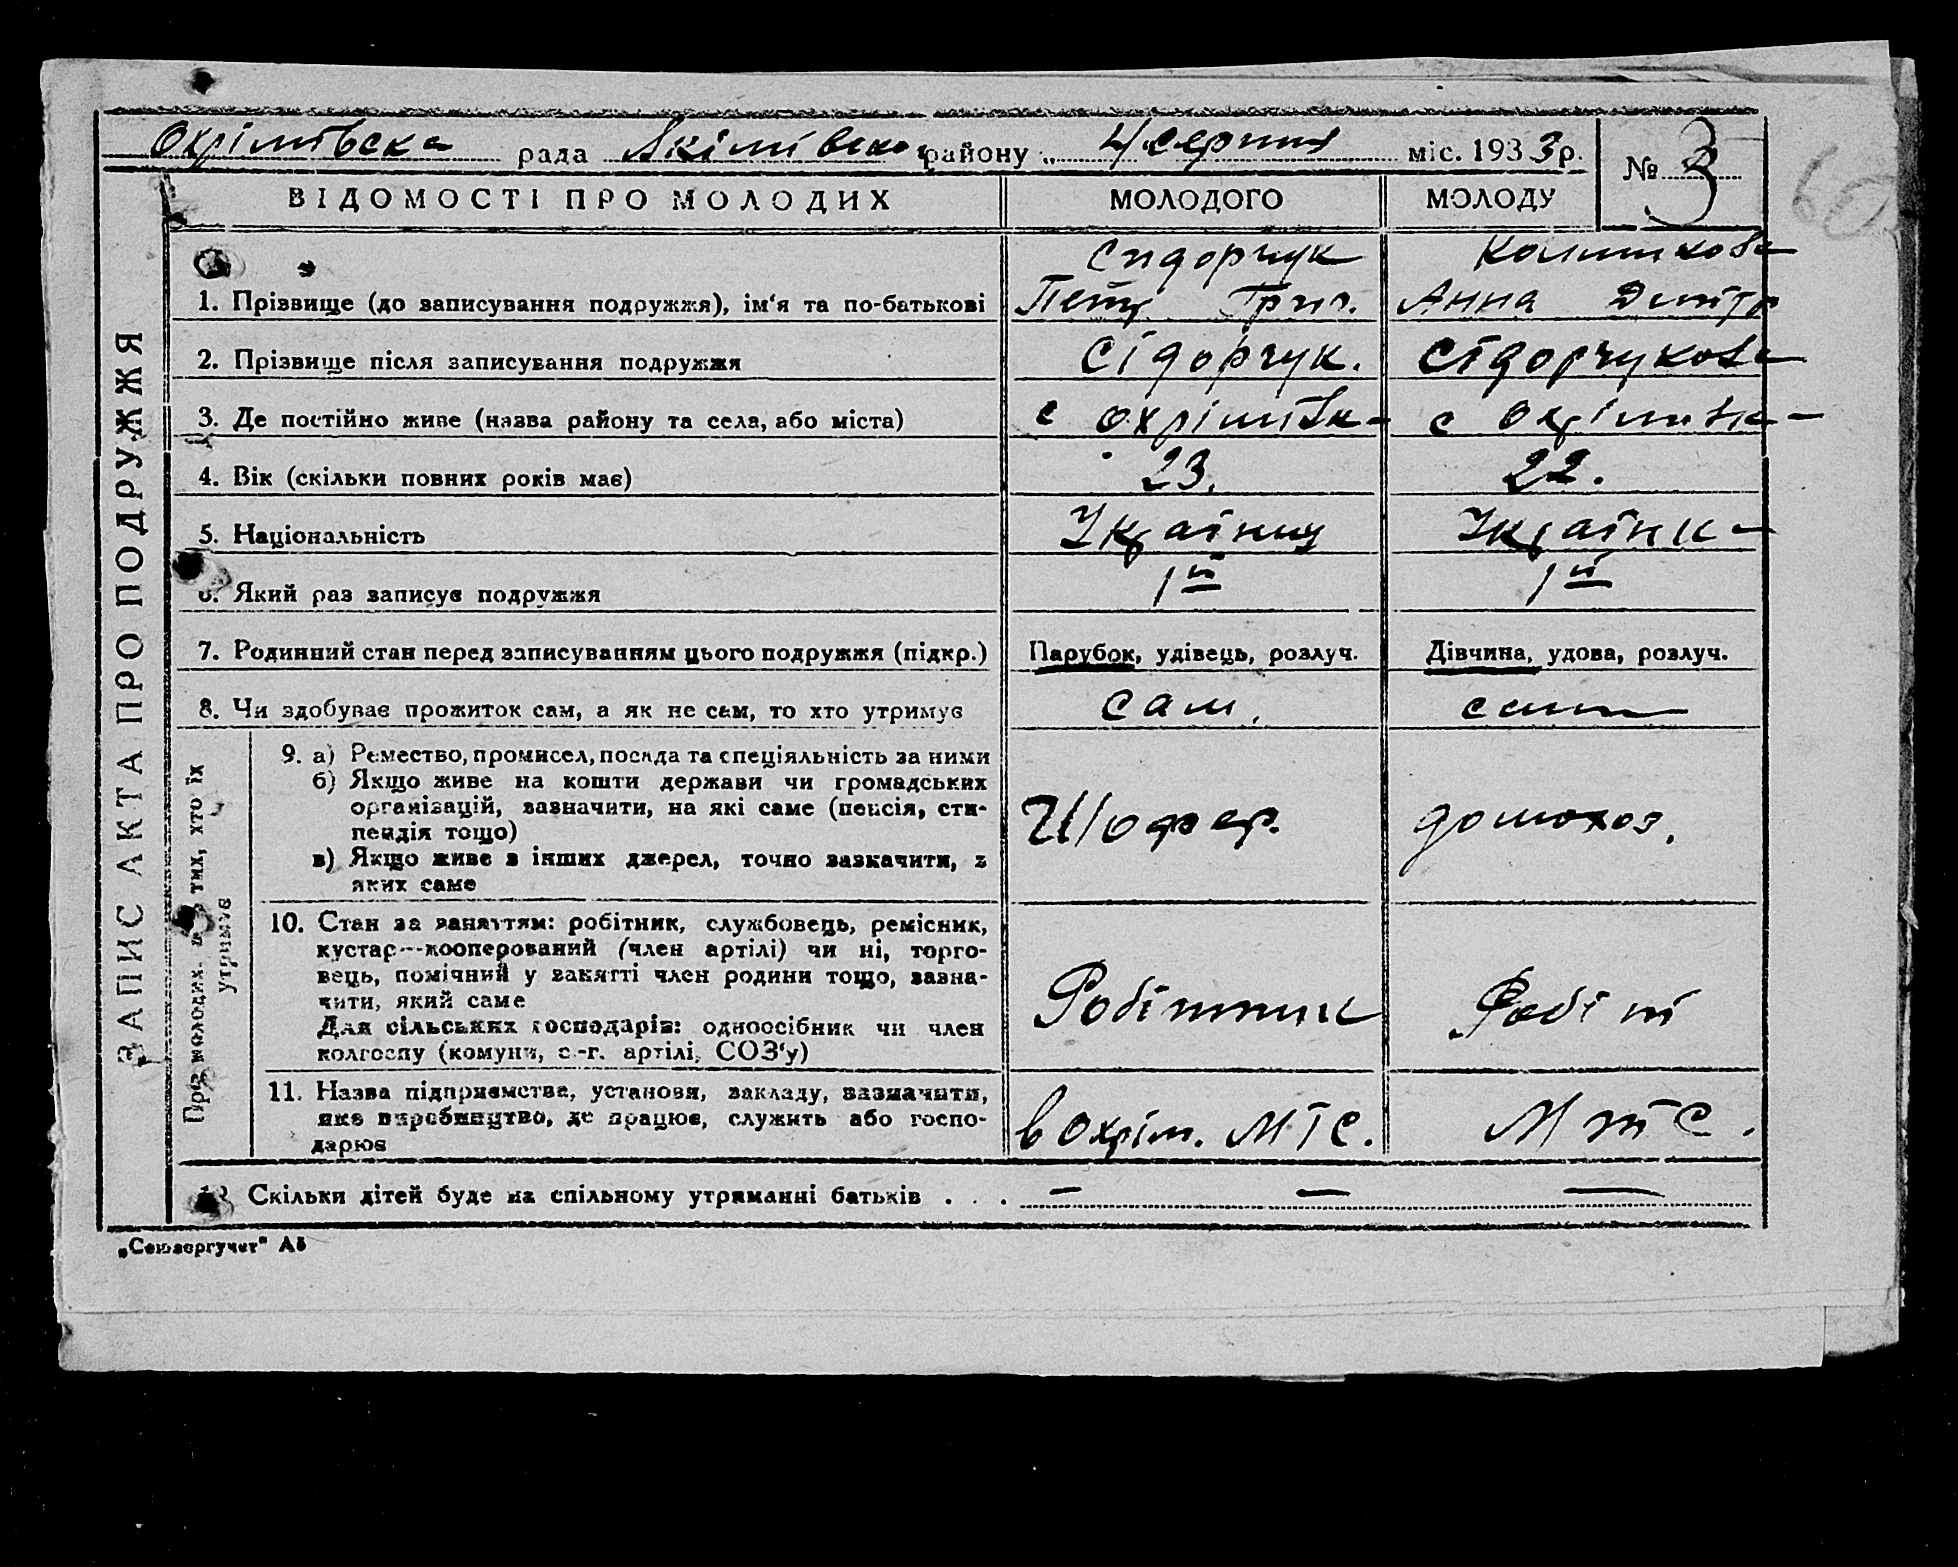 Охрімівська рада Якімівськ району „ 4 серпня міс. 1933 р.
№ 3
60
ВІДОМОСТІ ПРО МОЛОДИХ МОЛОДОГО МОЛОДУ
ЗАПИС АКТА ПРО ПОДРУЖЖЯ
Сидорчук
1. Прізвище (до записування подружжя), ім'я та по-батькові Петр Григ. Анна Дмитр
2. Прізвище після записування подружжя Сідорчук. Сідорчукова
3. Де постійно живе (назва району та села, або міста) с Охрімівка с Охрімівка
4. Вік (скільки повних років має) 23. 22.
5. Національність Українец Українка
6. Який раз записує подружжя 1й 1й
7. Родинний стан перед записуванням цього подружжя (підкр.) Парубок, удівець, розлуч. Дівчина, удова, розлуч.
8. Чи здобуває прожиток сам, а як не сам, то хто утримує сам. сама
Про молодих, тих, хто їх
утримує
9. а) Ремество, промисел, посада та спеціяльність за ними
б) Якщо живе на кошти держави чи громадських
організацій, зазначити, на які саме (пенсія, сти-
пендія тощо)
в) Якщо живе з інших джерел, точно зазначити, з
яких саме
Шофер. домохоз.
10. Стан за заняттям: робітник, службовець, ремісник,
кустар—кооперований (член артілі) чи ні, торго-
вець, помічний у занятті член родини тощо, зазна-
чити, який саме
Для сільських господарів: одноосібник чи член
колгоспу (комуни, с.-г. артілі, СОЗ'у)
Робітник Робіт
11. Назва підприємства, установи, закладу, зазначити,
яке виробництво, де працює, служить або госпо-
дарює
в Охрім. МТС. МТС.
12 Скільки дітей буде на спільному утриманні батьків . . . — — —
„Союзоргучет" А5